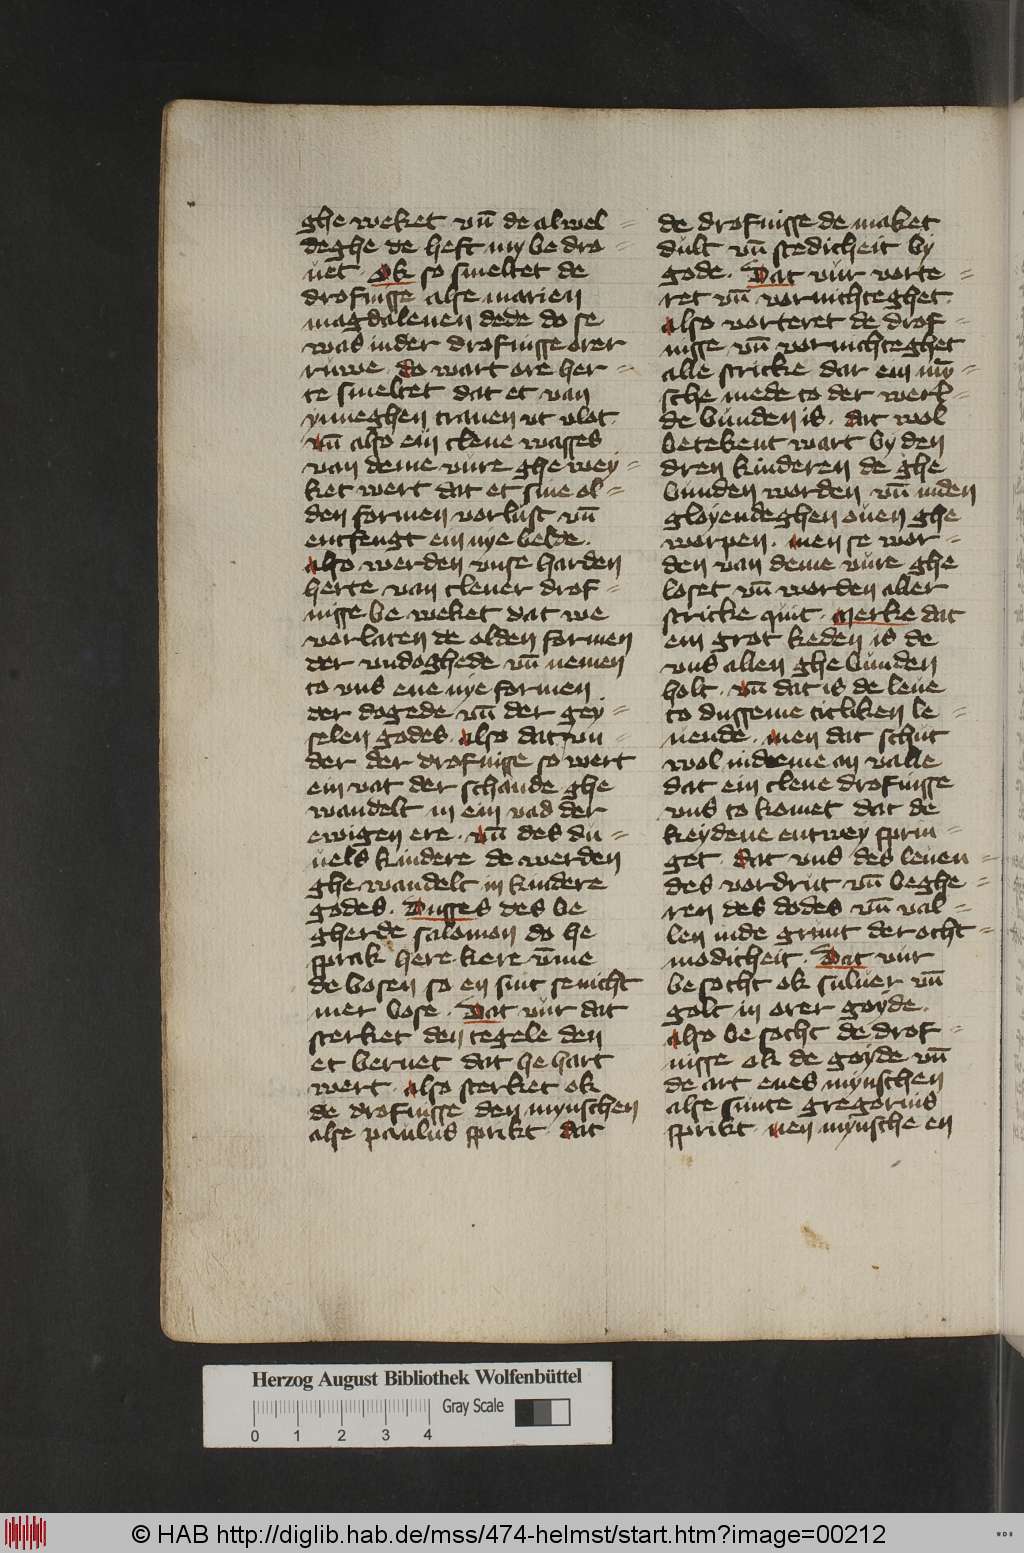 ghe weket vn̄ de alwel-
deghe de heft my be dro-
uet . Ok so smeltet de
drofnisse alse marien
magdalenen dede do se
was in der drofnisse orer
ruwe . do wart ore her-
te smeltet dat et van
ynneghen tranen vt vlot
vn̄ also ein clene wasses
van deme vure ghe wey-
ket wert dat et sine ol-
den formen vorlust vn̄
entfengt ein nye belde .
also werden vnse harden
herte van clener drof-
nisse be weket dat we
vorlaten de olden formen
der vndoghede vn̄ nemen
to vns ene nye formen
der dogede vn̄ der gey-
selen godes . also dat vn-
der der drofnisse so wert
ein vat der schande ghe
wandelt in ein vad der
ewigen ere . vn̄ des du-
uels kindere de werden
ghe wandelt in kindere
godes . Dusses des be
gherde salomon do he
sprak here kere v̄me
de bosen so en sint se nicht
mer bose . Dat vur dat
sterket den tegele den
et bernet dat he hart
wert . also sterket ok
de drofnisse den mynschen
alse paulus sprikt . dat
de drofnisse de maket
dult vn̄ stedicheit by
gode . Dat vur vorte-
ret vn̄ vornichteghet .
also vorteret de drof-
nisse vn̄ vornichteghet
alle stricke dar ein mȳ-
sche mede to der werl-
de bunden is . dat wol
betekent wart by den
dren kinderen de ghe
bunden worden vn̄ in den
gloyendeghen ouen ghe
worpen . men se wor-
den van deme vure ghe
loset vn̄ worden aller
stricke quit . Merke dat
ein grot keden is de
vns allen ghe bunden
holt . vn̄ dat is de leue
to dusseme titliken le-
uende . men dat schut
wol in deme an valle
dat ein clene drofnisse
vns to komet dat de
keydene entwey sprin-
get . dat vns des leuen-
des vordrut vn̄ beghe-
ren des dodes vn̄ val-
len in de grunt der ocht-
modicheit . Dat vur
be socht ok suluer vn̄
golt in orer goyde .
also be socht de drof-
nisse ok de goyde vn̄
de art enes mynschen
alse sunte gregorius
sprikt . nen mynsche en
Herzog August Bibliothek Wolfenbüttel
Gray Scale
0 1 2 3 4
© HAB http://diglib.hab.de/mss/474-helmst/start.htm?image=00212